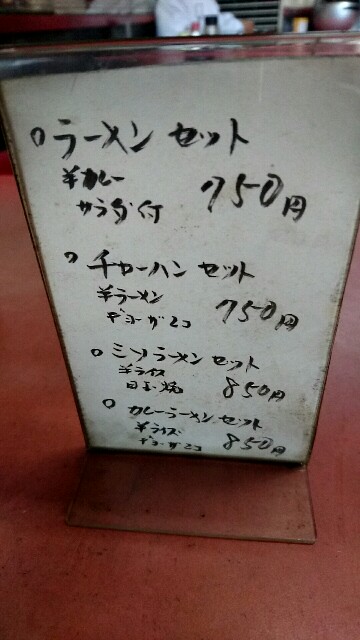 ○ ラーメン セット
半カレー
サラダ付 750円
○ チャーハン セット
半ラーメン
ギョーザ2コ 750円
○ ミソラーメン セット
半ライス
目玉焼 850円
○ カレーラーメン セット
半ライス
ギョーザ2コ 850円